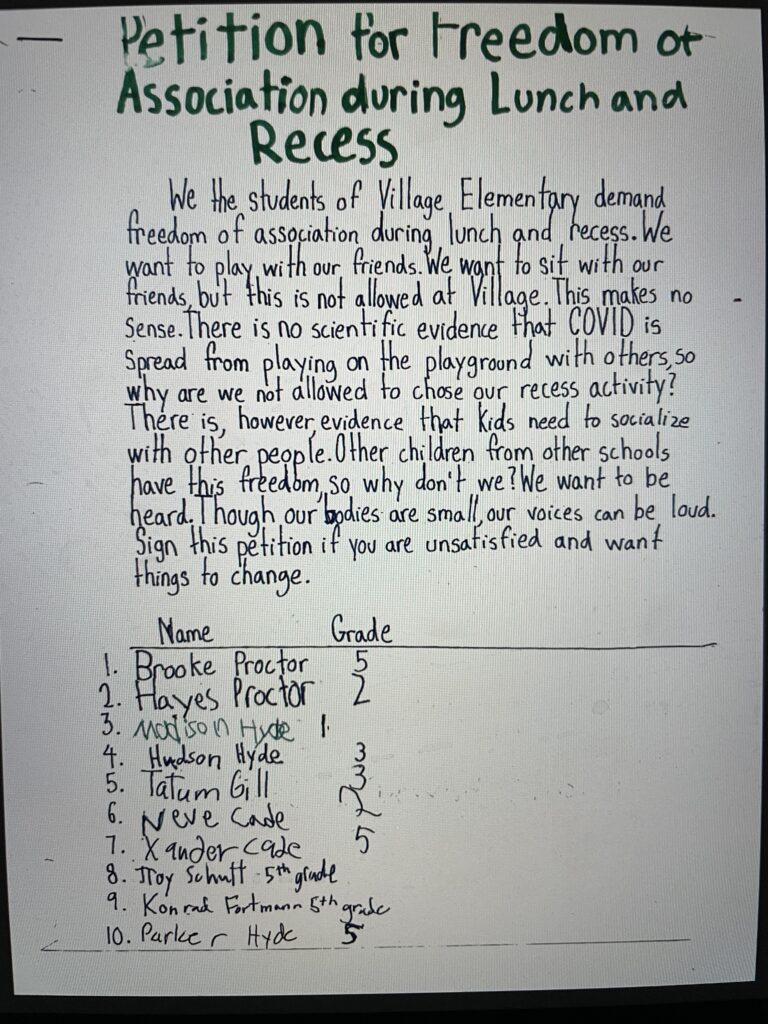 Petition for Freedom of
Association during Lunch and
Recess
We the students of Village Elementary demand
freedom of association during lunch and recess. We
want to play with our friends. We want to sit with our
friends, but this is not allowed at Village. This makes no
sense. There is no scientific evidence that COVID is
spread from playing on the playground with others, so
why are we not allowed to chose our recess activity?
There is, however, evidence that kids need to socialize
with other people. Other children from other schools
have this freedom, so why don't we? We want to be
heard. Though our bodies are small, our voices can be loud.
Sign this petition if you are unsatisfied and want
things to change.
Name Grade
1. Brooke Proctor 5
2. Hayes Proctor 2
3. Madison Hyde 1.
4. Hudson Hyde 3
5. Tatum Gill 3
6. Neve Cade 2
7. Xander Cade 5
8. Troy Schutt - 5th grade
9. Konrad Fortmann 5th grade
10. Parker Hyde 5